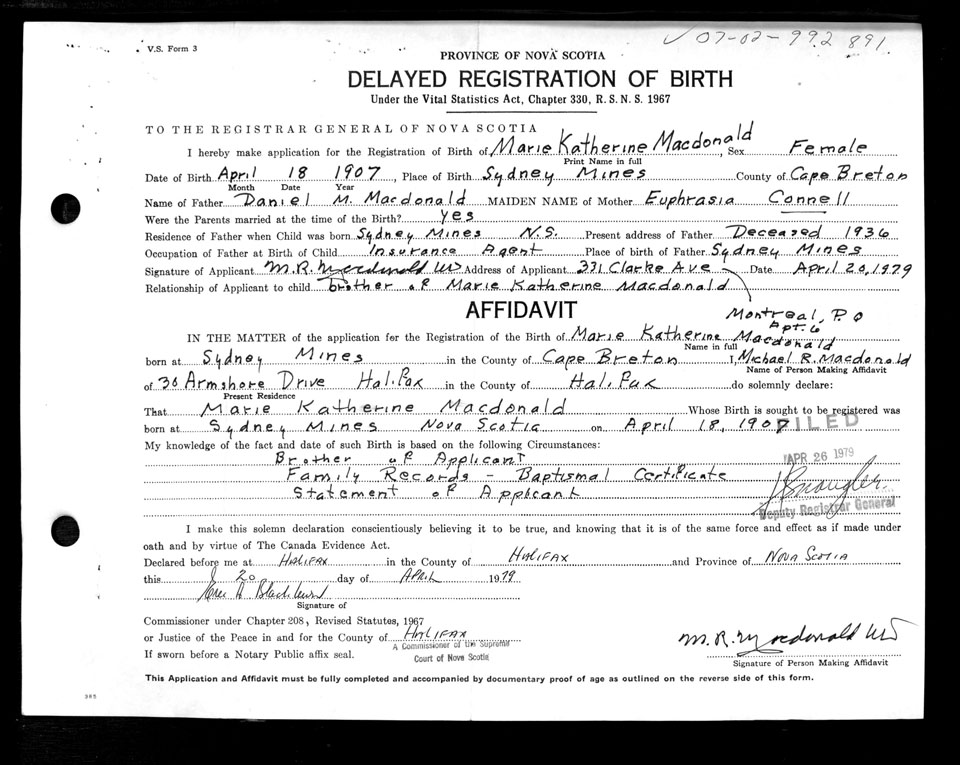 07-02-992 891.
V.S. Form 3
PROVINCE OF NOVA SCOTIA
DELAYED REGISTRATION OF BIRTH
Under the Vital Statistics Act, Chapter 330, R.S.N.S. 1967
TO THE REGISTRAR GENERAL OF NOVA SCOTIA
I hereby make application for the Registration of Birth of Marie Katherine Macdonald, Sex Female
Print Name in full
Date of Birth April 18 1907, Place of Birth Sydney Mines County of Cape Breton
Month Date Year
Name of Father Daniel M. Macdonald MAIDEN NAME of Mother Euphrasia Connell
Were the Parents married at the time of the Birth? Yes
Residence of Father when Child was born Sydney Mines N.S. Present address of Father Deceased 1936
Occupation of Father at Birth of Child Insurance Agent Place of birth of Father Sydney Mines
Signature of Applicant M.R. Macdonald Address of Applicant 331 Clarke Ave Date April 20, 1979
Relationship of Applicant to child brother of Marie Katherine Macdonald
Montreal, P.Q
Apt. 6
AFFIDAVIT
IN THE MATTER of the application for the Registration of the Birth of Marie Katherine Macdonald
Name in full
born at Sydney Mines in the County of Cape Breton I, Michael R. Macdonald
Name of Person Making Affidavit
of 30 Armshore Drive Halifax in the County of Halifax do solemnly declare:
Present Residence
That Marie Katherine Macdonald Whose Birth is sought to be registered was
born at Sydney Mines Nova Scotia on April 18, 1907
FILED
My knowledge of the fact and date of such Birth is based on the following Circumstances:
Brother of Applicant
APR 26 1979
Family Records - Baptismal Certificate
Statement of Applicant
Deputy Registrar General
I make this solemn declaration conscientiously believing it to be true, and knowing that it is of the same force and effect as if made under
oath and by virtue of The Canada Evidence Act.
Declared before me at Halifax in the County of Halifax and Province of Nova Scotia
this 20 day of April 1979
Signature of
Commissioner under Chapter 208, Revised Statutes, 1967
or Justice of the Peace in and for the County of Halifax
A Commissioner of the Supreme
Court of Nova Scotia
If sworn before a Notary Public affix seal.
M.R. Macdonald
Signature of Person Making Affidavit
This Application and Affidavit must be fully completed and accompanied by documentary proof of age as outlined on the reverse side of this form.
365